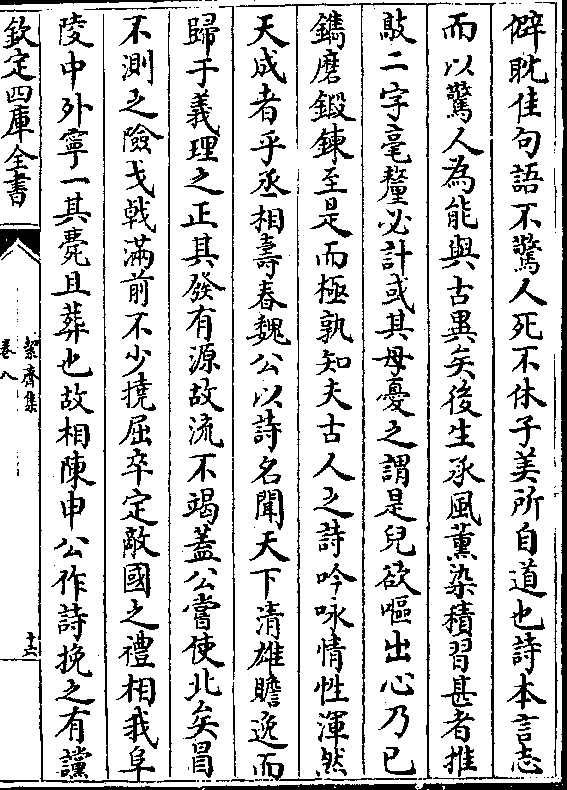 僻耽佳句語不驚人死不休子美所自道也詩本言志
而以驚人為能與古異矣後生承風薰染積習甚者推
敲二字毫釐必計或其母憂之謂是兒欲嘔出心乃已
鐫磨鍛鍊至是而極孰知夫古人之詩吟咏情性渾然
天成者乎丞相壽春魏公以詩名聞天下清雄贍逸而
歸于義理之正其發有源故流不竭蓋公嘗使北矣冒
不測之險戈戟滿前不少撓屈卒定敵國之禮相我阜
陵中外寧一其薨且葬也故相陳申公作詩挽之有讜
欽定四庫全書
絜齊集
卷八
十六